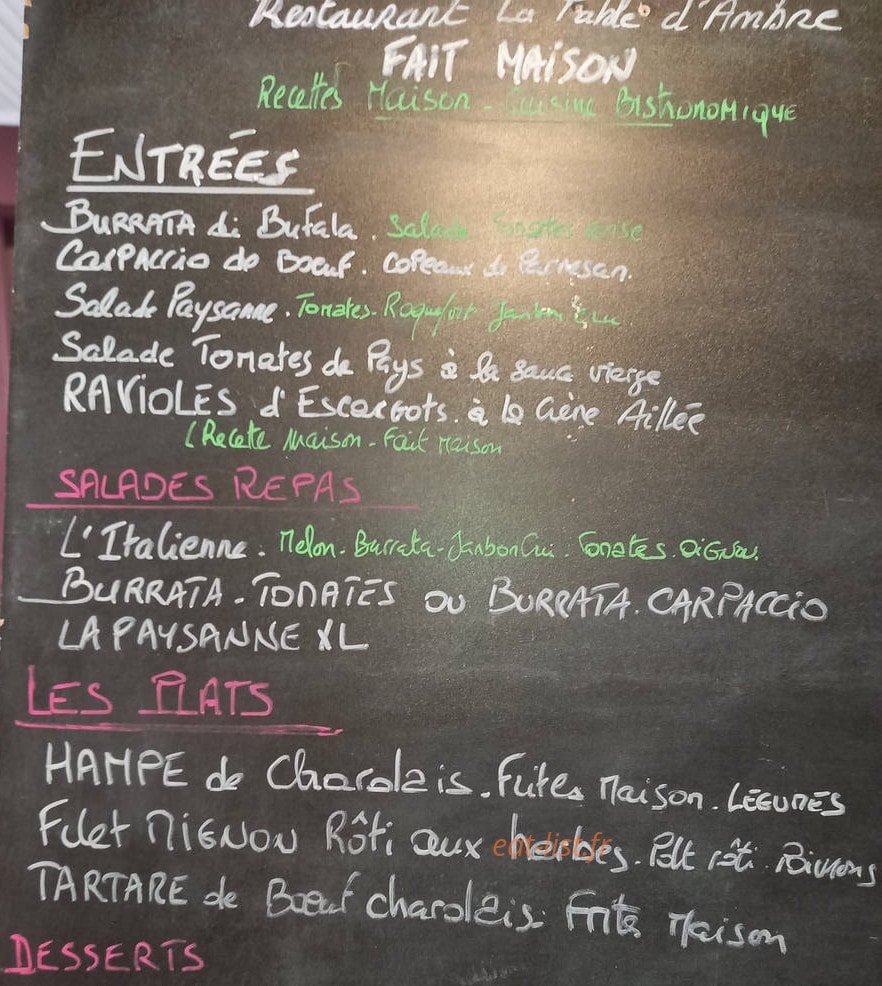 Restaurant La Table d'Ambre
FAIT MAISON
Recettes Maison - Cuisine BISTRONOMIQUE
ENTRÉES
BURRATA di Bufala . Salade Tomates
CARPACCIO de Boeuf . Copeaux de Parmesan.
Salade Paysanne . Tomates - Roquefort Jambon
Salade Tomates de Pays à la sauce vierge
RAVIOLES d'Escargots . à la Crème Aillée
(Recette Maison - Fait Maison
SALADES REPAS
L'Italienne . Melon - Burrata - Jambon Cru . Tomates . OIGNON.
BURRATA . TOMATES OU BURRATA . CARPACCIO
LA PAYSANNE XL
LES PLATS
HAMPE de Charolais . Frites Maison . LÉGUMES
Filet MIGNON Rôti aux herbes . rôti .
TARTARE de Boeuf charolais . Frites Maison
DESSERTS
eatdist.fr